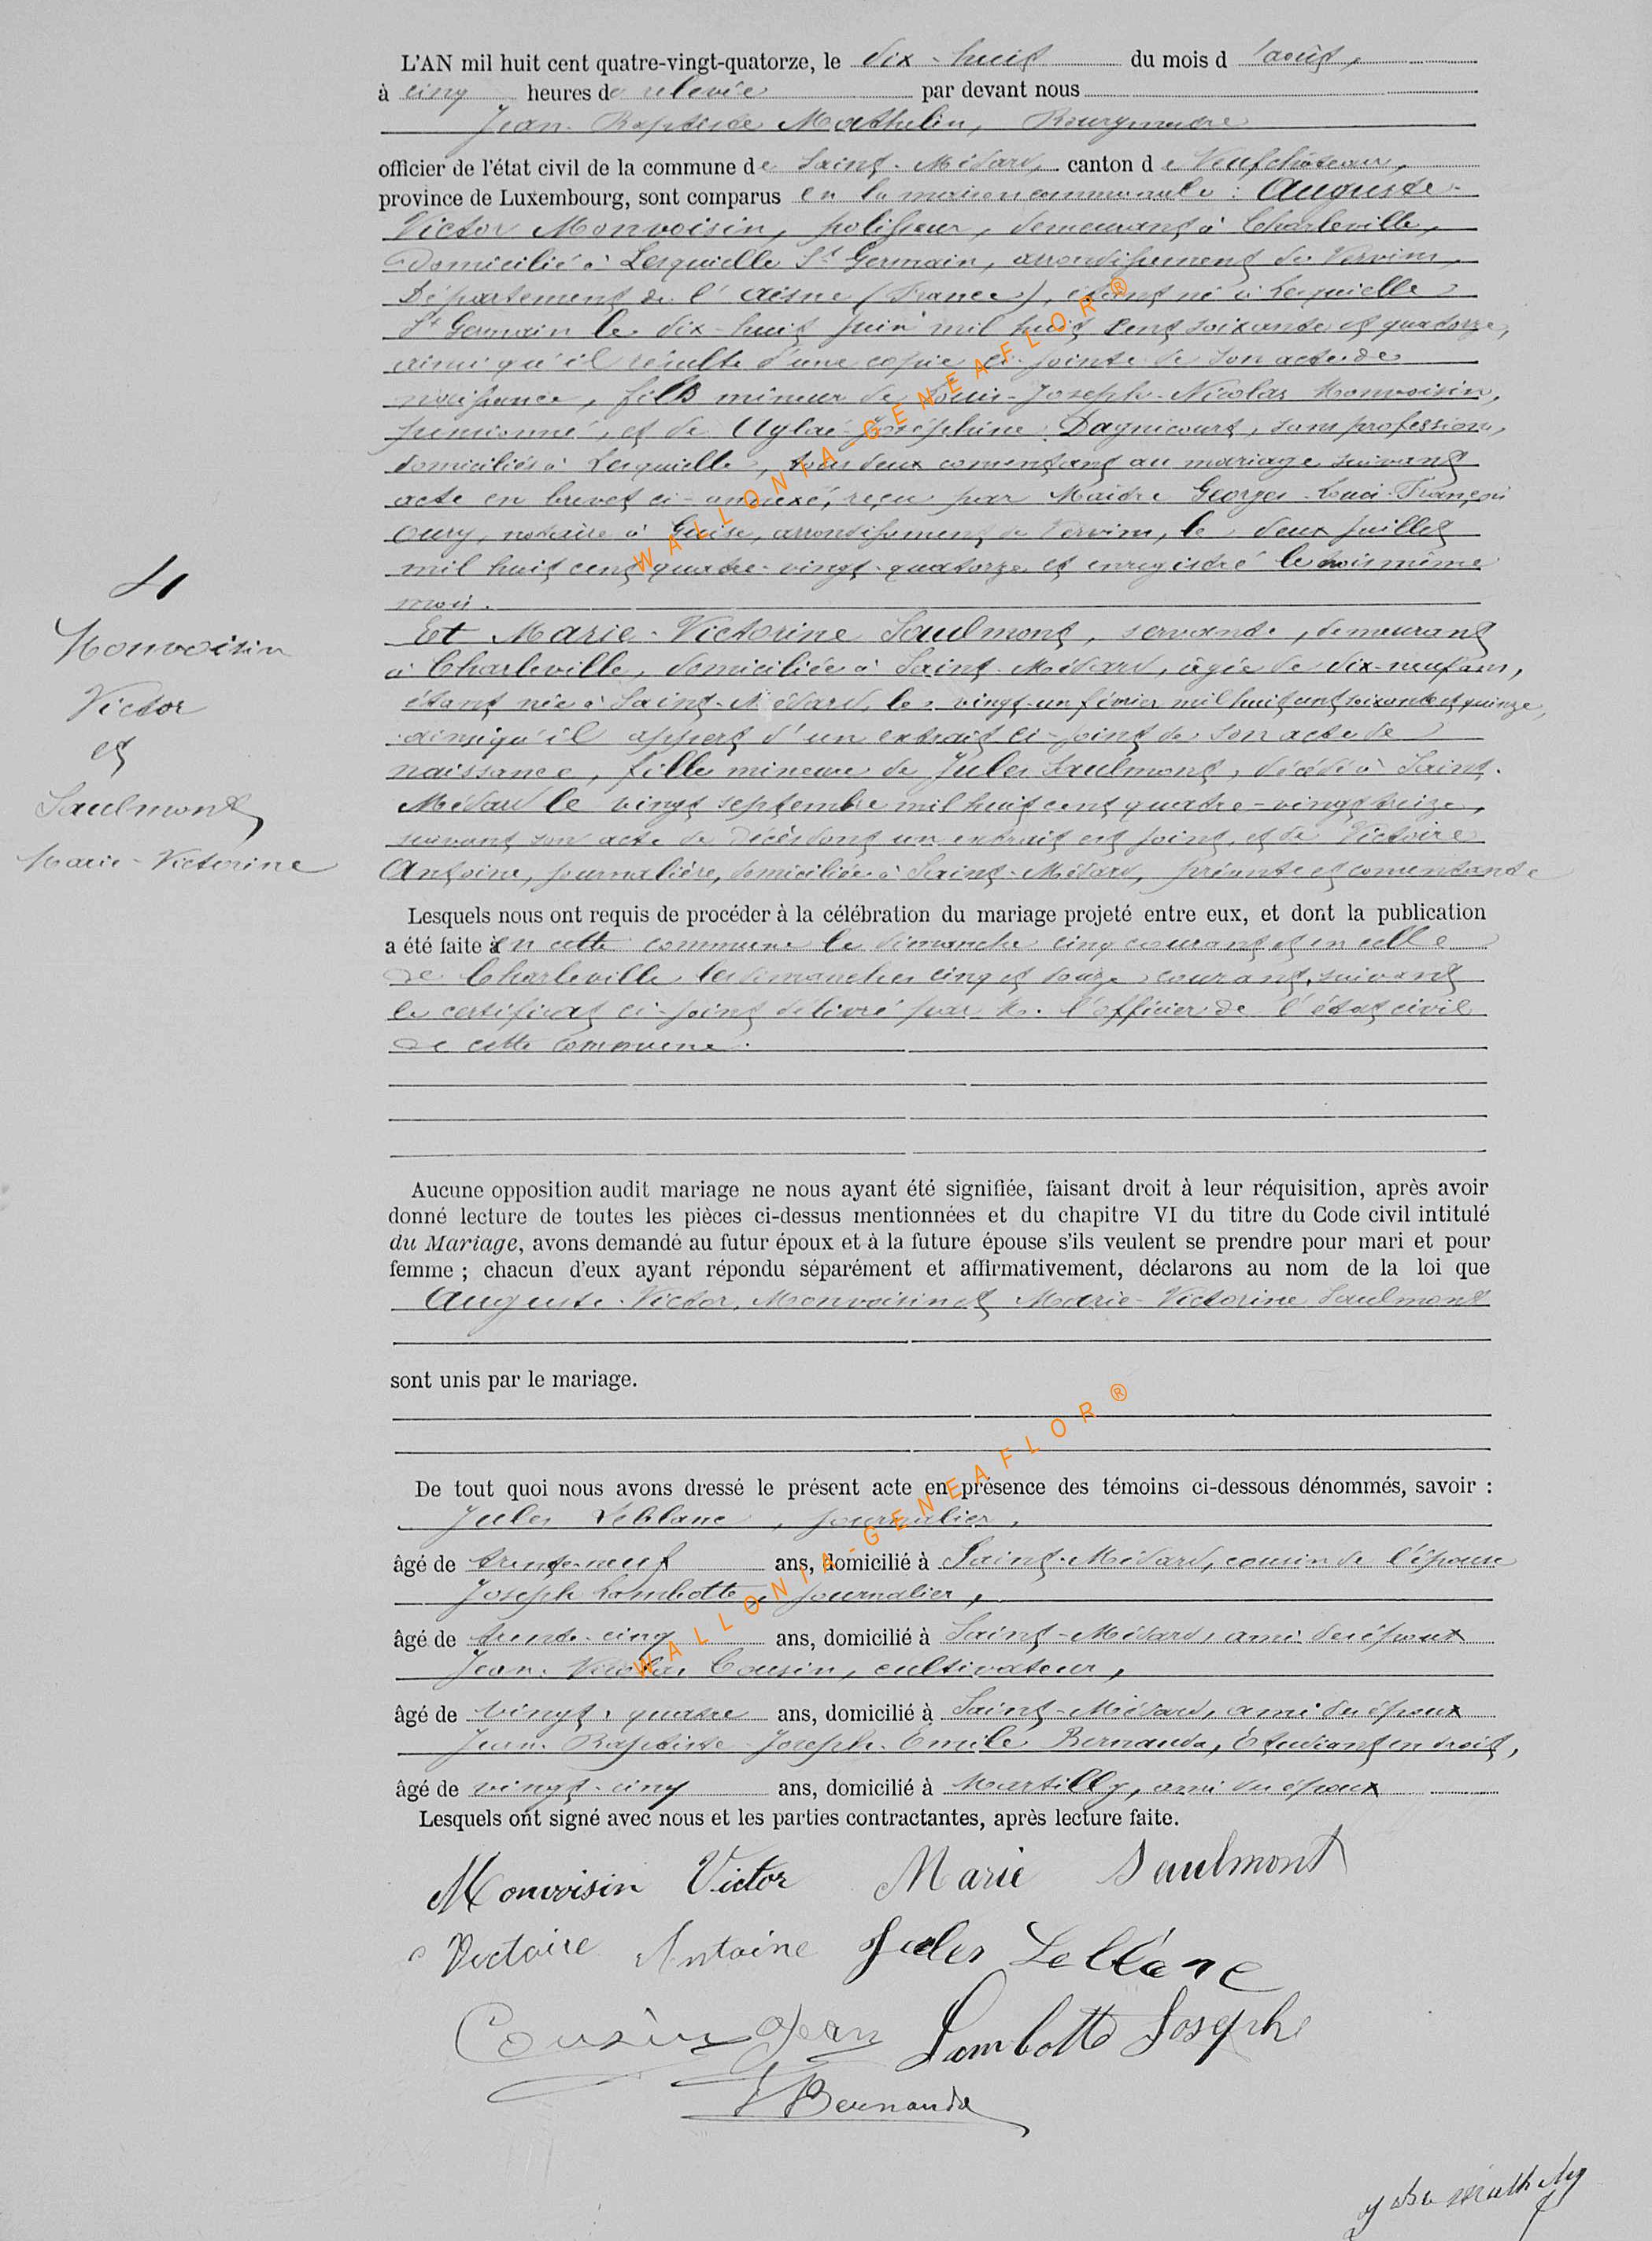 L'AN mil huit cent quatre-vingt-quatorze, le dix-huit du mois d'août,
à cinq heures de relevée par devant nous
Jean-Baptiste Mathelin, Bourgmestre
officier de l'état civil de la commune de Saint-Médard, canton de Neufchâteau,
province de Luxembourg, sont comparus en la maison communale : Auguste-
Victor Monvoisin, polisseur, demeurant à Charleville,
domicilié à Lesquielle St Germain, arrondissement de Vervins,
Département de l'Aisne (France), étant né à Lesquielle
St Germain le dix-huit juin mil huit cent soixante et quatorze,
ainsi qu'il résulte d'une copie ci-jointe de son acte de
naissance, fils mineur de Louis-Joseph-Nicolas Monvoisin,
pensionné, et de Aglaé-Joséphine Dagnicourt, sans profession,
domiciliés à Lesquielle, tous deux consentant au mariage suivant
acte en brevet ci-annexé, reçu par Maître Georges-Louis-François
Oury, notaire à Guise, arrondissement de Vervins, le deux juillet
mil huit cent quatre-vingt-quatorze et enregistré le trois même
mois.
Et Marie-Victorine Saulmont, servante, demeurant
à Charleville, domiciliée à Saint-Médard, âgée de dix-neuf ans,
étant née à Saint-Médard, le vingt-un février mil huit cent soixante et quinze,
ainsi qu'il appert d'un extrait ci-joint de son acte de
naissance, fille mineure de Jules Saulmont, décédé à Saint-
Médard le vingt septembre mil huit cent quatre-vingt treize,
suivant son acte de décès dont un extrait est joint, et de Victoire
Antoine, journalière, domiciliée à Saint-Médard, présente et consentante
4
Monvoisin
Victor
et
Saulmont
Marie-Victorine
Lesquels nous ont requis de procéder à la célébration du mariage projeté entre eux, et dont la publication
a été faite en cette commune le dimanche cinq courant et en celle
de Charleville les dimanches cinq et douze courant, suivant
le certificat ci-joint délivré par M. l'officier de l'état civil
de cette commune.
Aucune opposition audit mariage ne nous ayant été signifiée, faisant droit à leur réquisition, après avoir
donné lecture de toutes les pièces ci-dessus mentionnées et du chapitre VI du titre du Code civil intitulé
du Mariage, avons demandé au futur époux et à la future épouse s'ils veulent se prendre pour mari et pour
femme ; chacun d'eux ayant répondu séparément et affirmativement, déclarons au nom de la loi que
Auguste-Victor Monvoisin et Marie-Victorine Saulmont
sont unis par le mariage.
De tout quoi nous avons dressé le présent acte en présence des témoins ci-dessous dénommés, savoir :
Jules Leblanc, journalier,
âgé de trente-neuf ans, domicilié à Saint-Médard, cousin de l'épouse
Joseph Lambotte, journalier,
âgé de trente-cinq ans, domicilié à Saint-Médard, ami des époux
Jean-Nicolas Cousin, cultivateur,
âgé de vingt-quatre ans, domicilié à Saint-Médard, ami des époux
Jean-Baptiste-Joseph-Emile Bernauda, Etudiant en droit,
âgé de vingt-cinq ans, domicilié à Martilly, ami des époux
Lesquels ont signé avec nous et les parties contractantes, après lecture faite.
Monvoisin Victor Marie Saulmont
Victoire Antoine Jules Leblanc
Cousin Jean Lambotte Joseph
E Bernauda
WALLONIA-GENEAFLOR®
WALLONIA-GENEAFLOR®